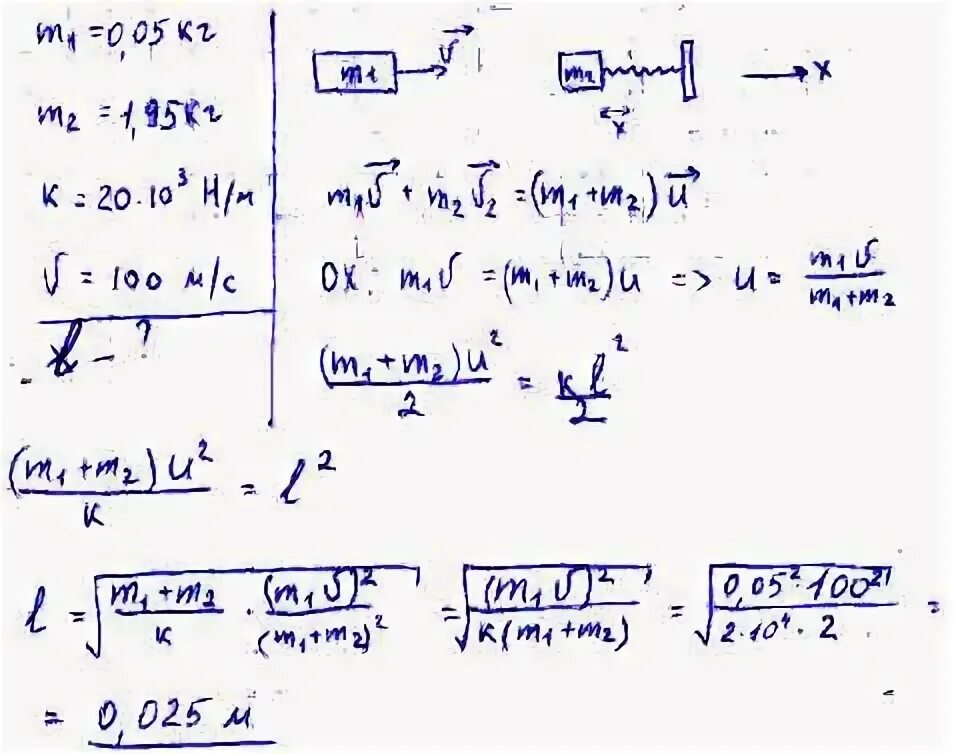 m₁ = 0,05 кг
m₂ = 1,95 кг
k = 20·10³ Н/м
υ = 100 м/с
l - ?
m₁ υ⃗ m₂ x x
m₁υ⃗ + m₂υ⃗₂ = (m₁ + m₂) u⃗
OX: m₁υ = (m₁ + m₂) u => u = m₁υ / (m₁ + m₂)
(m₁ + m₂) u² / 2 = k l² / 2
(m₁ + m₂) u² / k = l²
l = √((m₁ + m₂) / k · (m₁υ)² / (m₁ + m₂)²) = √((m₁υ)² / k(m₁ + m₂)) = √(0,05² · 100² / 2·10⁴ · 2) =
= 0,025 м